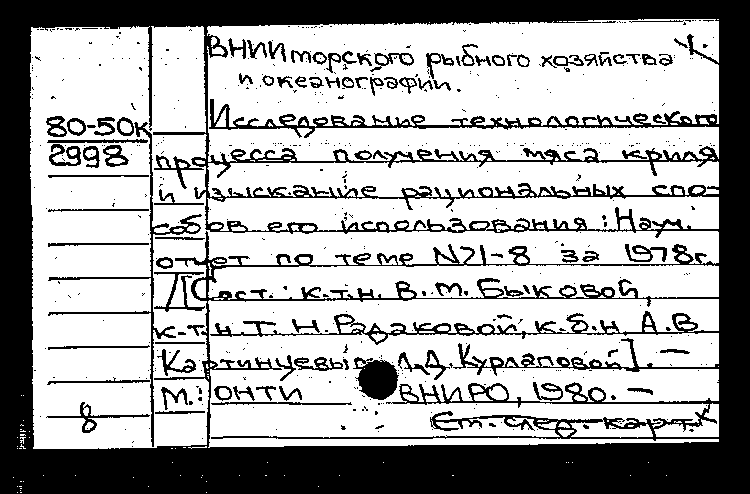 ВНИИ морского рыбного хозяйства
и океанографии.
80-50к
Исследование технологического
2998
процесса получения мяса криля
и изыскание рациональных спо-
собов его использования: Науч.
отчет по теме №71-8 за 1978г.
/[Сост.: к.т.н. В.М. Быковой,
к.т.н Т.Н. Радаковой, к.б.н. А.В.
Картинцевым Л.Д. Курлаповой]. —
М.: ОНТИ ВНИРО, 1980. —
8
См. след. карт.